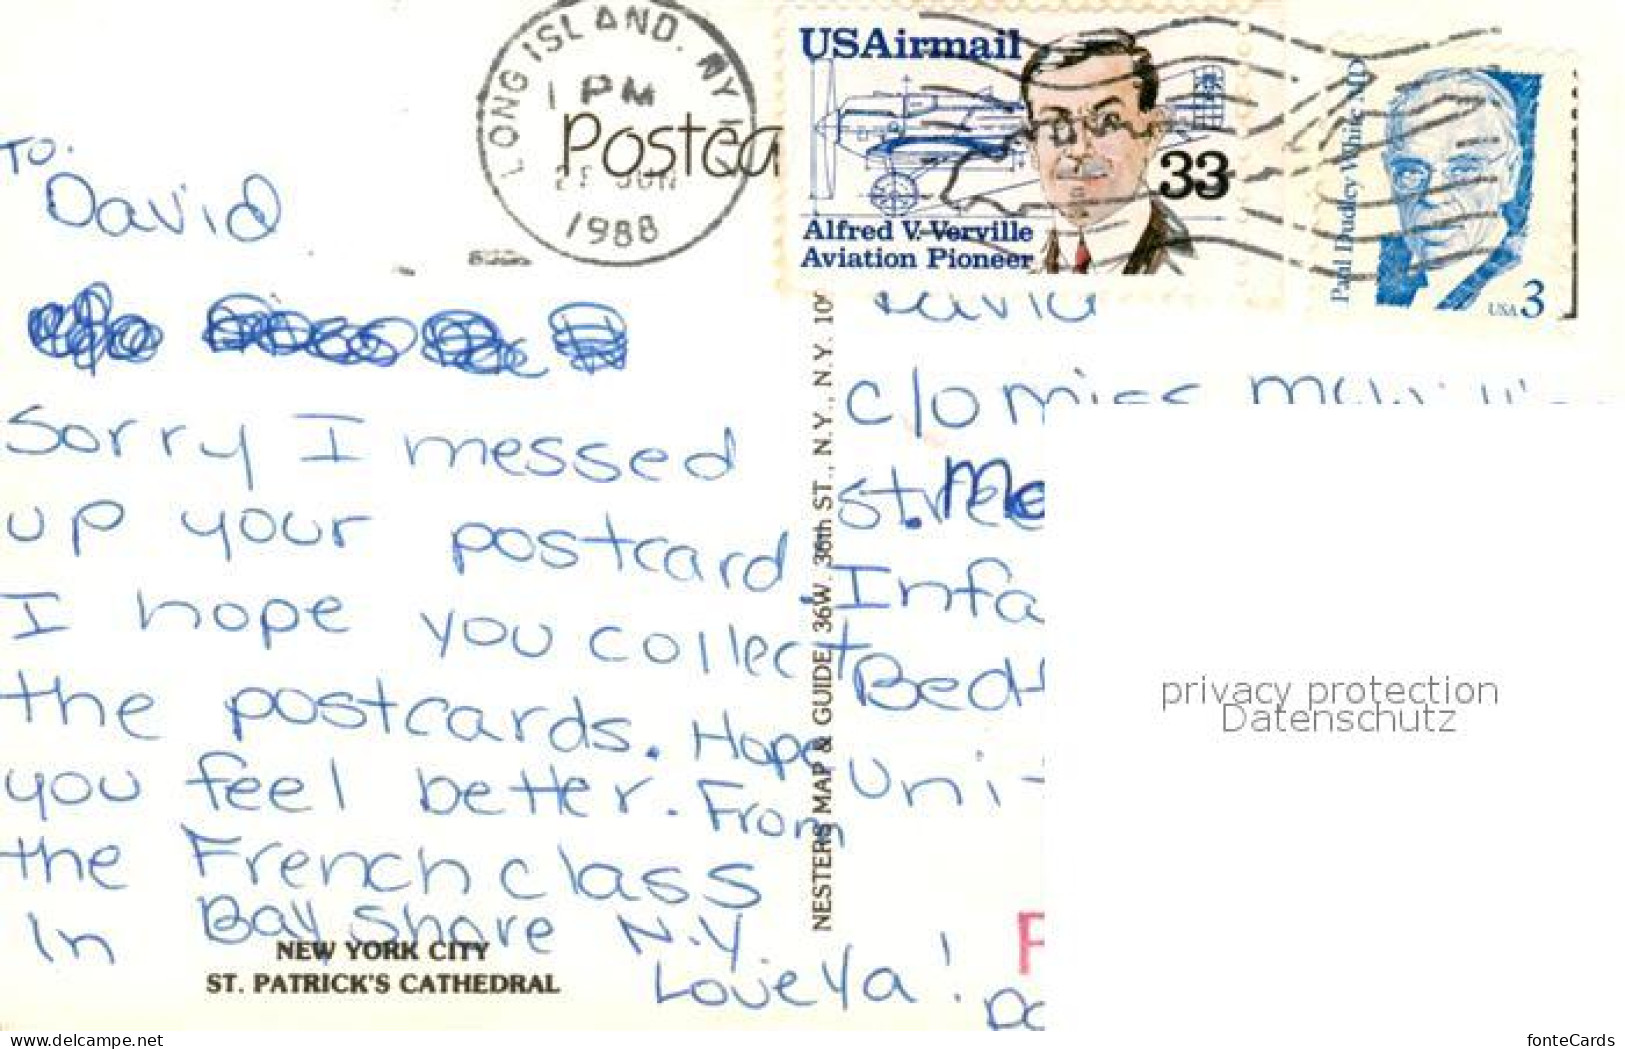 LONG ISLAND, NY
1 PM
JUN
1988
Postca
USAirmail
33
Alfred V. Verville
Aviation Pioneer
Paul Dudley White MD
USA 3
TO.
David
Sorry I messed
up your postcard,
I hope you collect
the postcards. Hope
you feel better. From
the French class
In Bay Shore N.Y
Love Ya!
NEW YORK CITY
ST. PATRICK'S CATHEDRAL
NESTERS MAP & GUIDE, 36W. 36th ST., N.Y., N.Y. 10
David
c/o miss
Me
Infa
Bed
Uni
P
privacy protection
Datenschutz
www.delcampe.net
fonteCards